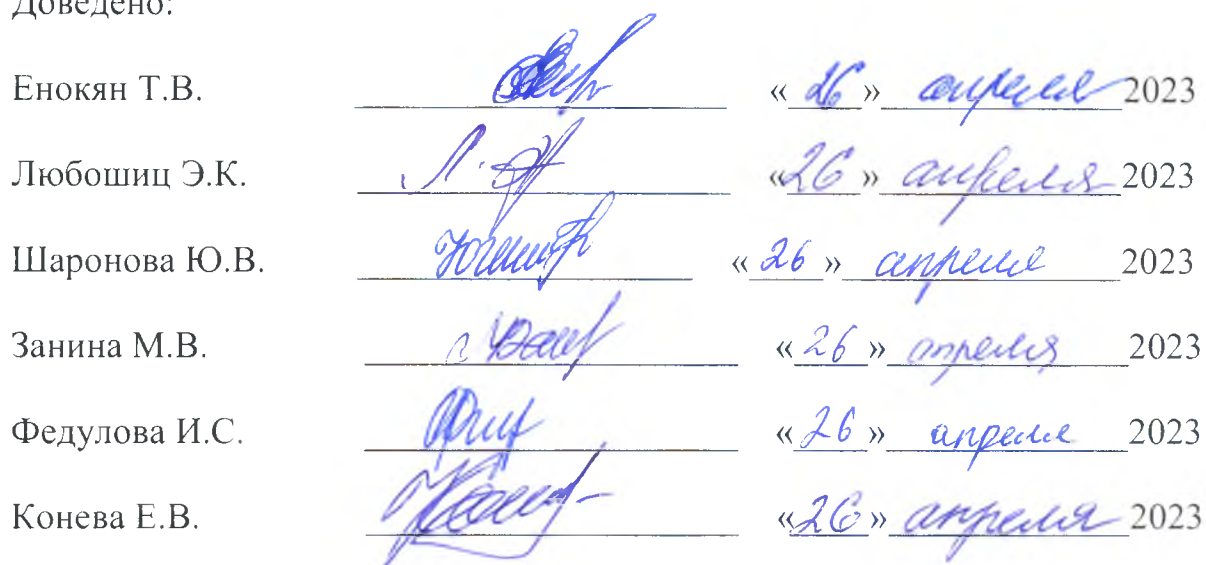 Доведено:
Енокян Т.В. « 26 » апреля 2023
Любошиц Э.К. «26 » апреля 2023
Шаронова Ю.В. « 26 » апреля 2023
Занина М.В. « 26 » апреля 2023
Федулова И.С. « 26 » апреля 2023
Конева Е.В. «26» апреля 2023